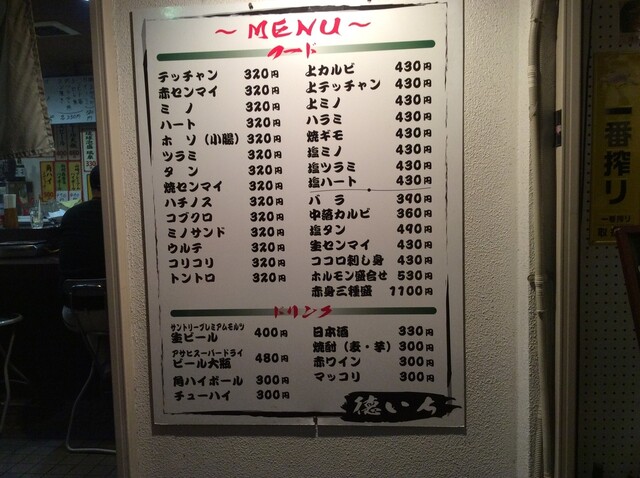 ～MENU～
フード
テッチャン 320円
赤センマイ 320円
ミノ 320円
ハート 320円
ホソ(小腸) 320円
ツラミ 320円
タン 320円
焼センマイ 320円
ハチノス 320円
コブクロ 320円
ミノサンド 320円
ウルテ 320円
コリコリ 320円
トントロ 320円
上カルビ 430円
上テッチャン 430円
上ミノ 430円
ハラミ 430円
焼ギモ 430円
塩ミノ 430円
塩ツラミ 430円
塩ハート 430円
バラ 390円
中落カルビ 360円
塩タン 490円
生センマイ 430円
ココロ刺し身 430円
ホルモン盛合せ 530円
赤身三種盛 1100円
ドリンク
サントリープレミアムモルツ
生ビール 400円
アサヒスーパードライ
ビール大瓶 480円
角ハイボール 300円
チューハイ 300円
日本酒 330円
焼酎(麦・芋) 300円
赤ワイン 300円
マッコリ 300円
徳いち
一番搾り